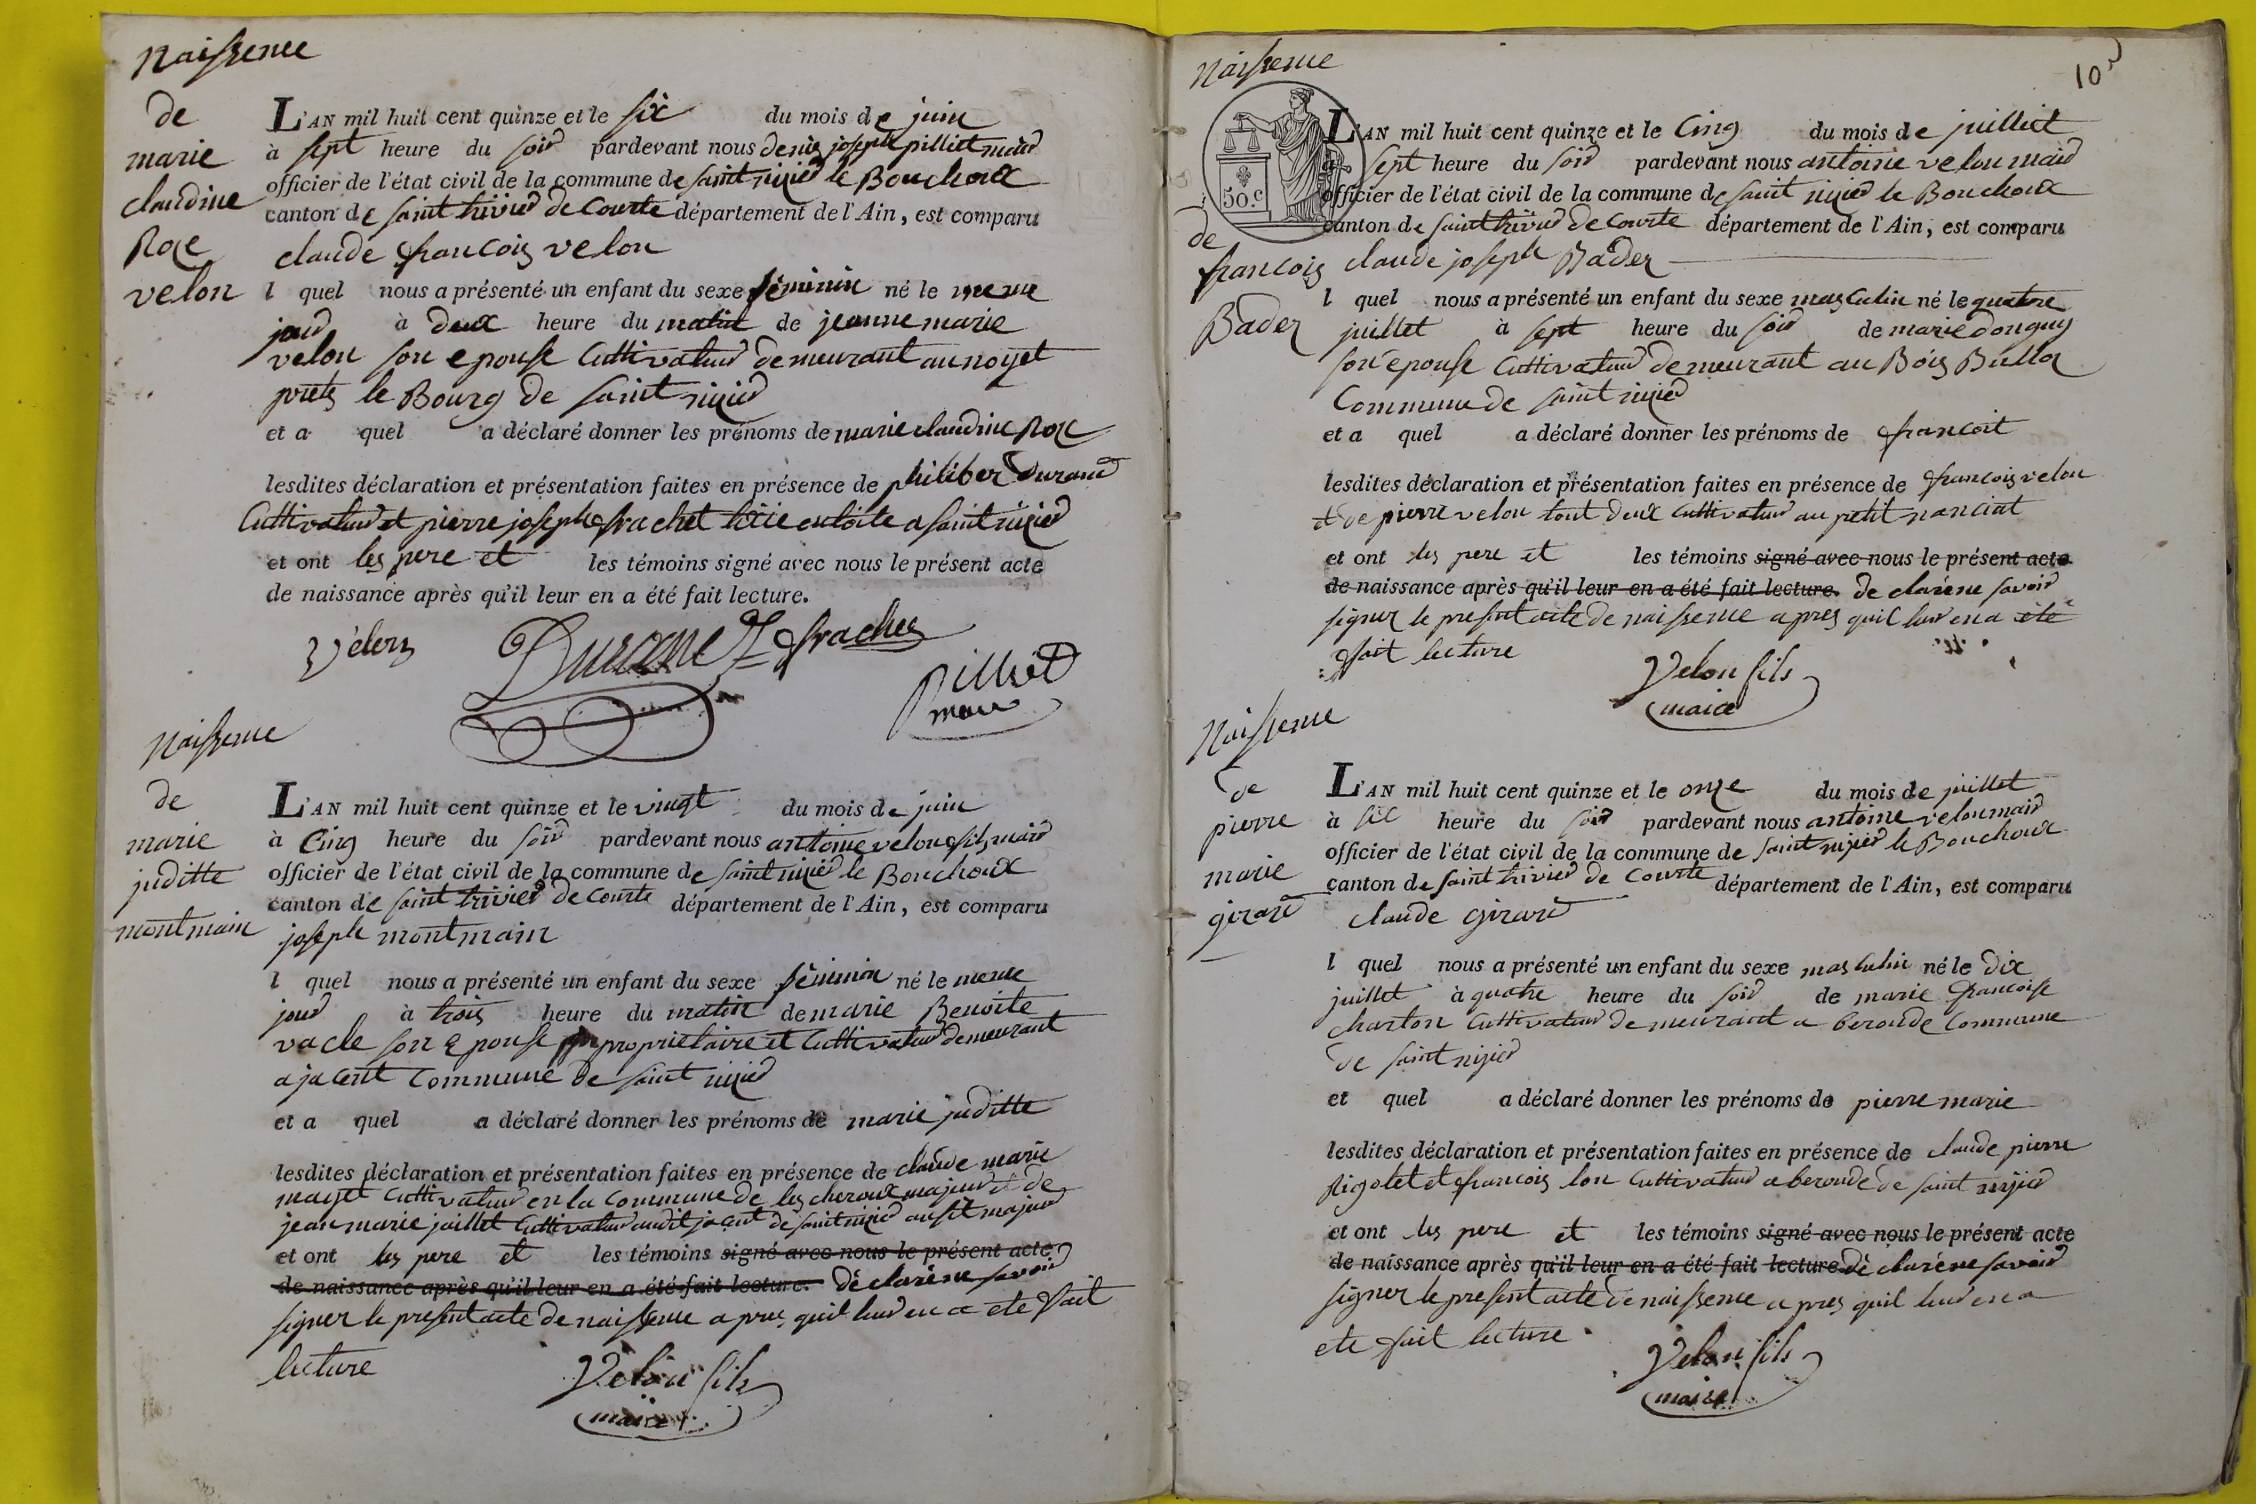 Naissence
de
marie
claudine
Roze
velon
L'AN mil huit cent quinze et le six du mois de juin
à sept heure du soir pardevant nous denis joseph pilliet maire
officier de l'état civil de la commune de saint nizier le Bouchoux
canton de saint trivier de Courte département de l'Ain, est comparu
claude francois velon
l quel nous a présenté un enfant du sexe féminin né le meme
jour à deux heure du matin de jeanne marie
velon son epouse Cultivateur demeurant au noyet
prets le Bourg de saint nizier
et a quel a déclaré donner les prénoms de marie claudine Roze
lesdites déclaration et présentation faites en présence de philiber Durand
Cultivateur et pierre joseph frachet a saint nizier
et ont les pere et les témoins signé avec nous le présent acte
de naissance après qu'il leur en a été fait lecture.
Velon Durand frachet
Pilliet
maire
Naissence
de
marie
juditte
montmain
L'AN mil huit cent quinze et le vingt du mois de juin
à Cinq heure du soir pardevant nous antoine velon fils maire
officier de l'état civil de la commune de saint nizier le Bouchoux
canton de saint trivier de Courte département de l'Ain, est comparu
joseph montmain
l quel nous a présenté un enfant du sexe féminin né le meme
jour à trois heure du matin de marie Benoite
vacle son epouse proprietaire et Cultivateur demeurant
a jacent Commune de saint nizier
et a quel a déclaré donner les prénoms de marie juditte
lesdites déclaration et présentation faites en présence de claude marie
mayet Cultivateur en la Commune de les cheroux majeur et de
jean marie jaillet Cultivateur audit jacent de saint nizier ausit majeur
et ont les pere et les témoins signé avec nous le présent acte
de naissance après qu'il leur en a été fait lecture. déclaréne savoir
signer le present acte de naissence apres quil leur en a ete fait
lecture
Velon fils
maire
10e
Naissence
de
francois
Bader
50.c
L'AN mil huit cent quinze et le Cinq du mois de juilliet
à sept heure du soir pardevant nous antoine velon maire
officier de l'état civil de la commune de saint nizier le Bouchoux
canton de saint trivier de Courte département de l'Ain, est comparu
claude joseph Bader
l quel nous a présenté un enfant du sexe masculin né le quatre
juillet à sept heure du soir de marie donguy
son epouse Cultivateur demeurant au Bois Bulloz
Commune de saint nizier
et a quel a déclaré donner les prénoms de francoit
lesdites déclaration et présentation faites en présence de francois velon
et de pierre velon tout deux Cultivateur au petit nanciat
et ont les pere et les témoins signé avec nous le présent acte
de naissance après qu'il leur en a été fait lecture. de claréne savoir
signer le present acte de naissence apres quil leur en a été
fait lecture
Velon fils
maire
Naissence
de
pierre
marie
girard
L'AN mil huit cent quinze et le onze du mois de juillet
à six heure du soir pardevant nous antoine velon maire
officier de l'état civil de la commune de saint nizier le Bouchoux
canton de saint trivier de Courte département de l'Ain, est comparu
claude girard
l quel nous a présenté un enfant du sexe masculin né le dix
juillet à quatre heure du soir de marie francoise
charton Cultivateur demeurant a beroude Commune
de saint nizier
et quel a déclaré donner les prénoms de pierre marie
lesdites déclaration et présentation faites en présence de claude pierre
Rigolet et francois lon Cultivateur a beroude de saint nizier
et ont les pere et les témoins signé avec nous le présent acte
de naissance après qu'il leur en a été fait lecture déclaréne savoir
signer le present acte de naissence apres quil leur en a
ete fait lecture
Velon fils
maire